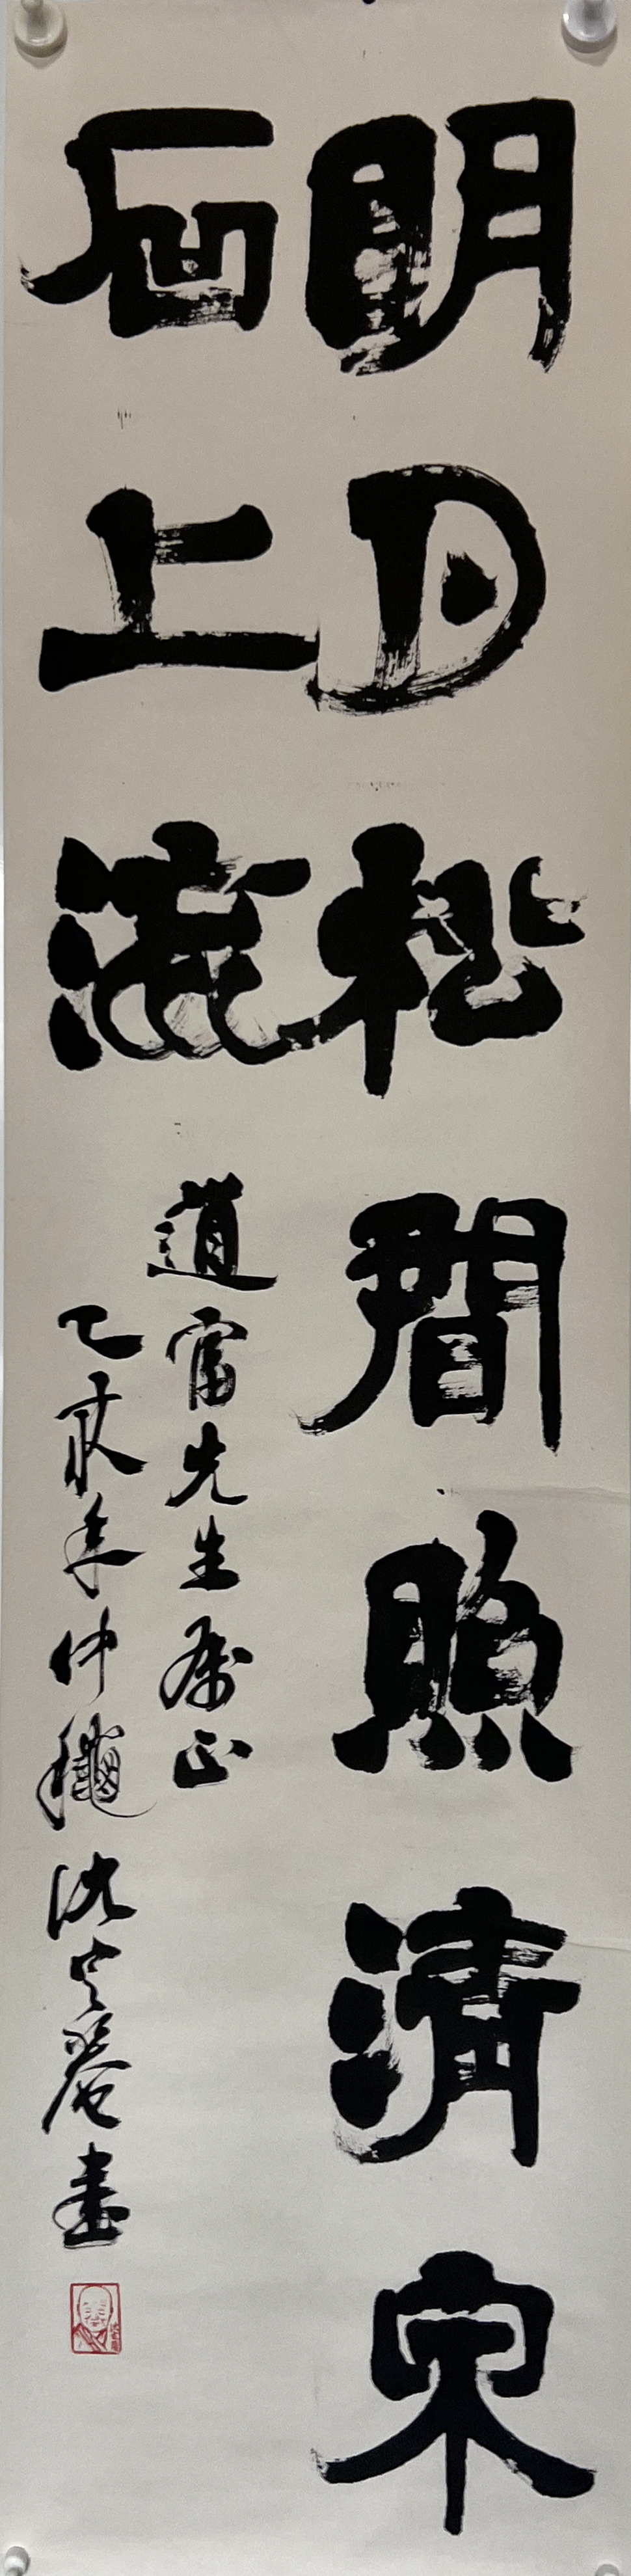 明月松間照清泉
石上流
道富先生属正
乙亥年仲龝沈定菴書